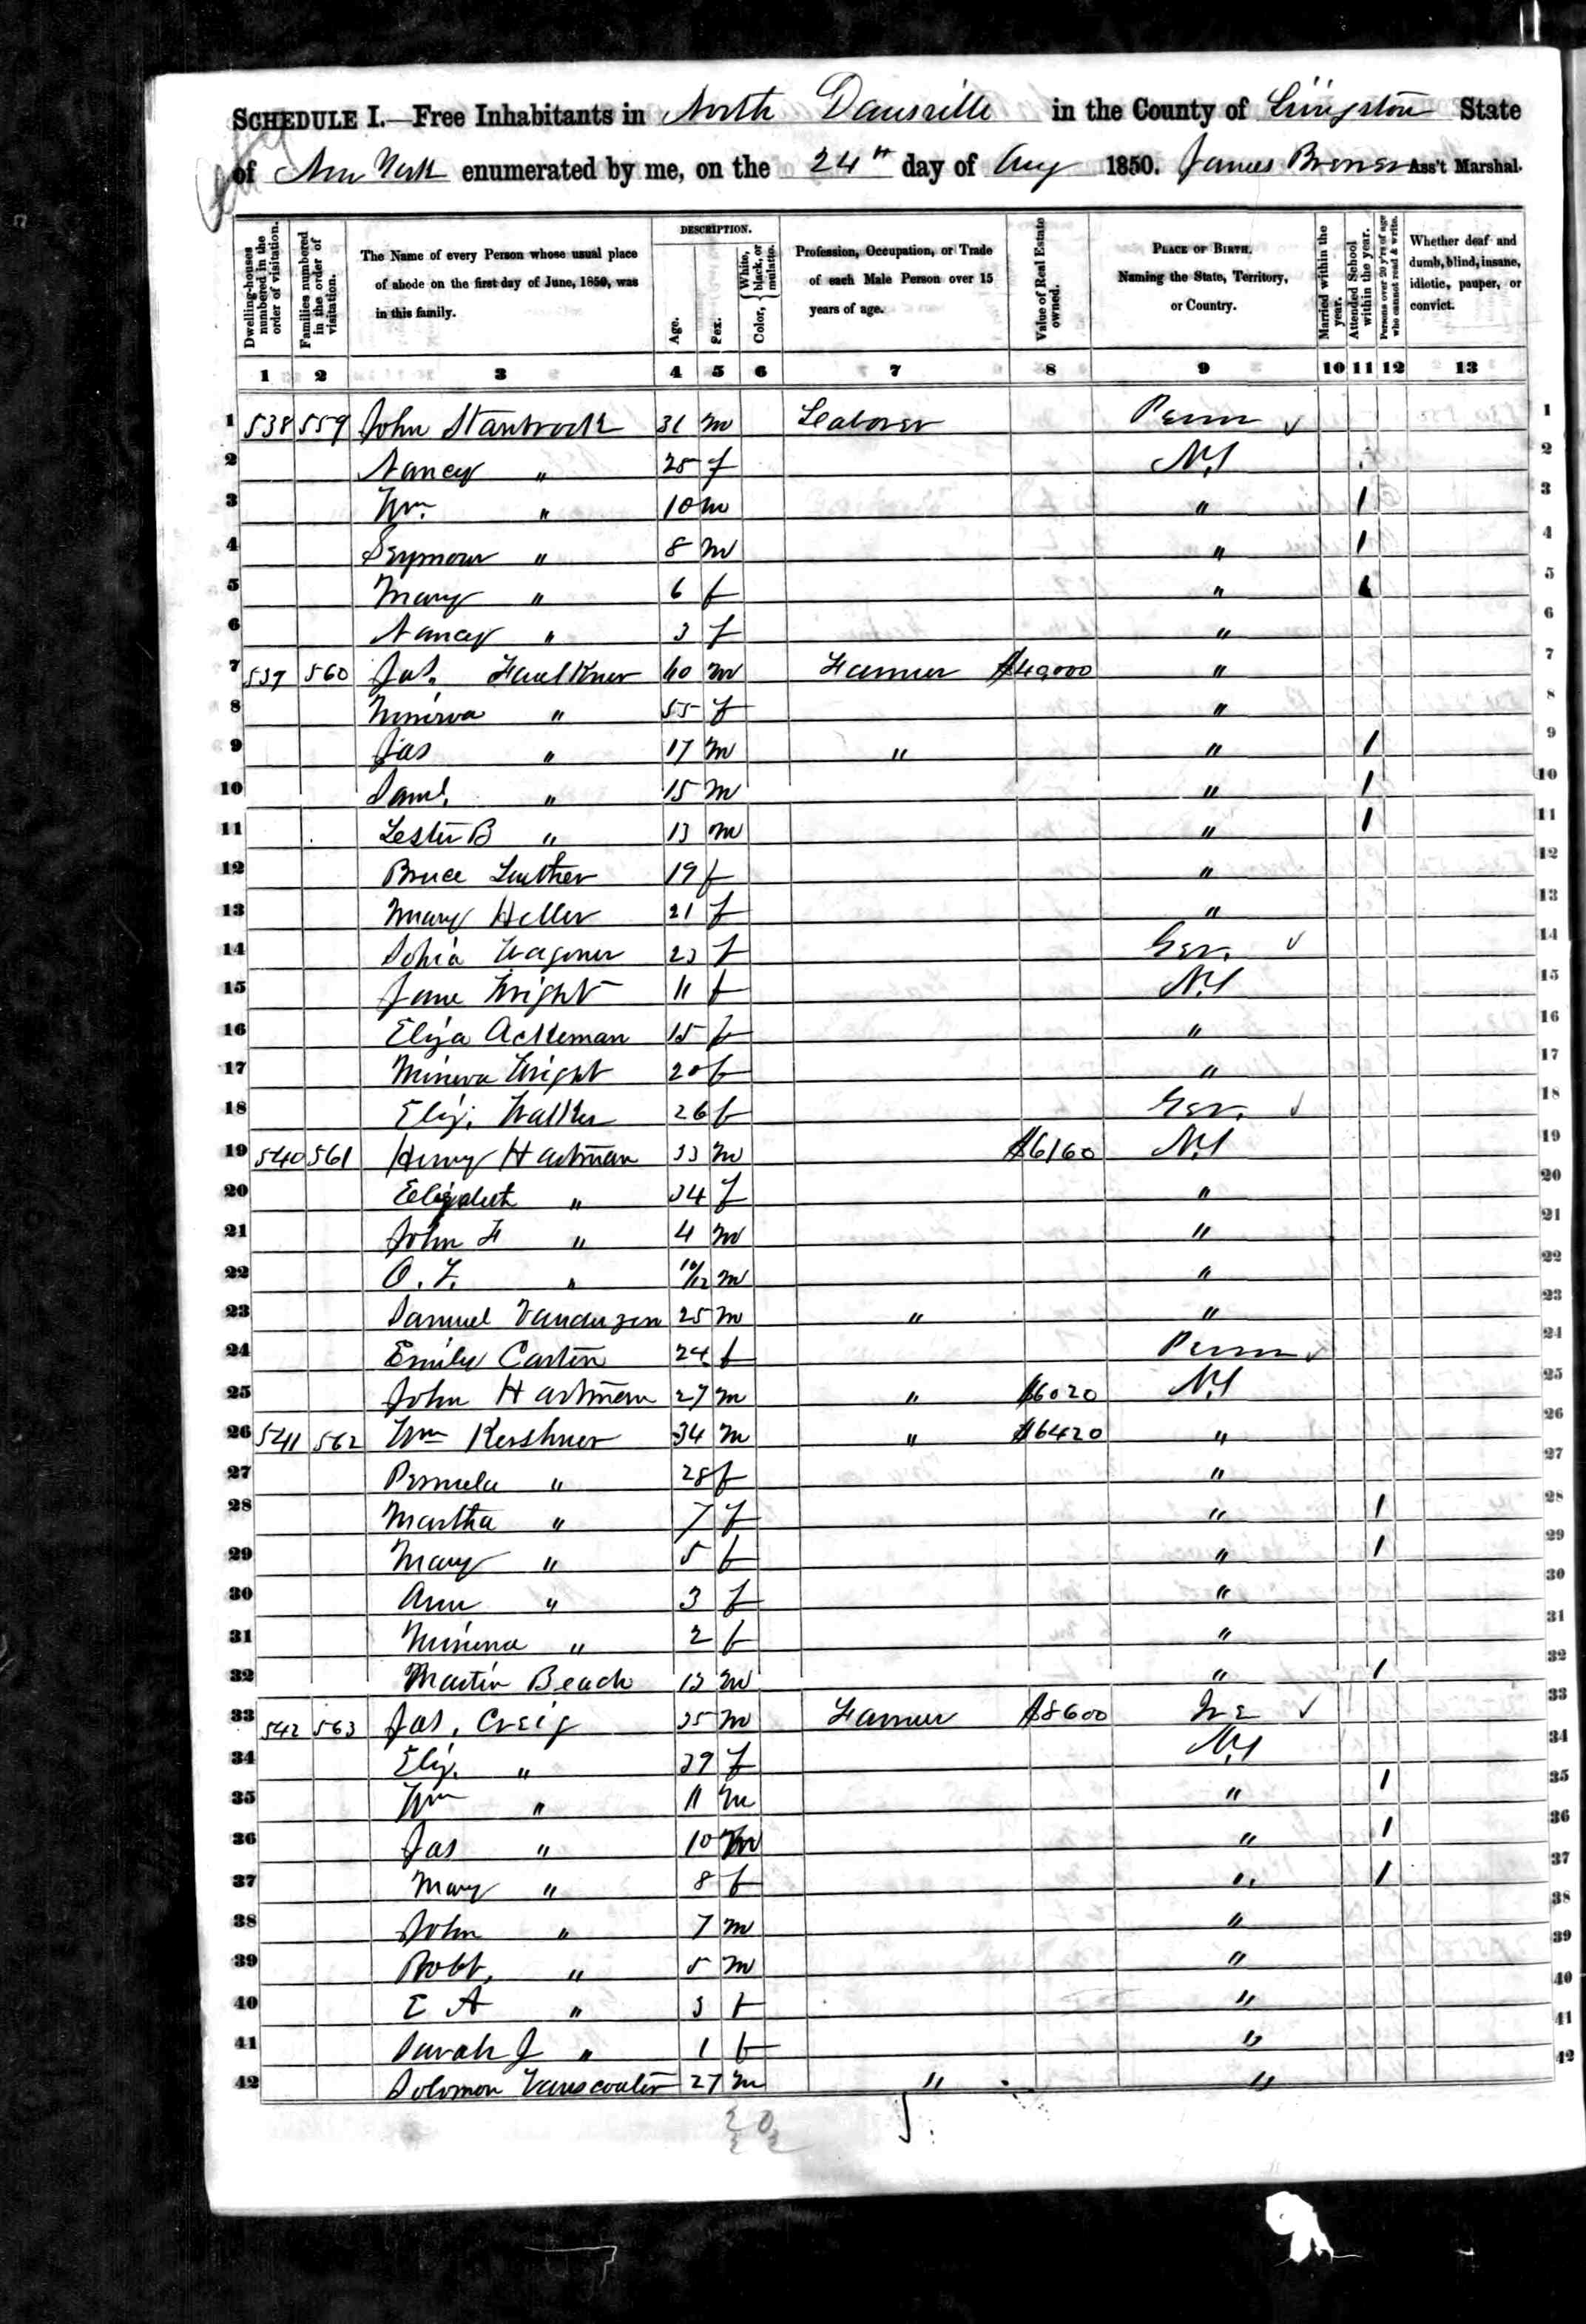 SCHEDULE I.—Free Inhabitants in North Dansville in the County of Livingston State
of New York enumerated by me, on the 24th day of Aug 1850. James Ass't Marshal.
Dwelling-houses numbered in the order of visitation.
Families numbered in the order of visitation.
The Name of every Person whose usual place of abode on the first day of June, 1850, was in this family.
DESCRIPTION.
Age.
Sex.
Color, { White, black, or mulatto.
Profession, Occupation, or Trade of each Male Person over 15 years of age.
Value of Real Estate owned.
PLACE OF BIRTH. Naming the State, Territory, or Country.
Married within the year.
Attended School within the year.
Persons over 20 y'rs of age who cannot read & write.
Whether deaf and dumb, blind, insane, idiotic, pauper, or convict.
1 2 3 4 5 6 7 8 9 10 11 12 13
1 538 559 John 31 m Penn ✓ 1
2 Nancy " 25 f N.Y 2
3 Wm. " 10 m " 1 3
4 Seymour " 8 m " 1 4
5 Mary " 6 f " 1 5
6 Nancy " 3 f " 6
7 539 560 Jas. Faulkner 60 m Farmer $40,000 " 7
8 Minerva " 55 f " 8
9 Jas " 17 m " " 1 9
10 Saml. " 15 m " 1 10
11 Lester B " 13 m " 1 11
12 Bruce Luther 19 f " 12
13 Mary Heller 21 f " 13
14 Sohia Wagoner 23 f Ger. ✓ 14
15 Jane Wright 11 f N.Y 15
16 Eliza Ackeman 15 f " 16
17 Minerva Wright 20 f " 17
18 Eliz. Walker 26 f Ger. ✓ 18
19 540 561 Henry Hartman 33 m $6160 N.Y 19
20 Elizabeth " 34 f " 20
21 John F " 4 m " 21
22 O. F. " 10/12 m " 22
23 Samuel Vanduzen 25 m " " 23
24 Emily 24 f Penn ✓ 24
25 John Hartman 27 m " $6020 N.Y 25
26 541 562 Wm Kershner 34 m " $6420 " 26
27 Permela " 28 f " 27
28 Martha " 7 f " 1 28
29 Mary " 5 f " 1 29
30 Ann " 3 f " 30
31 Minerva " 2 f " 31
32 Martin Beach 13 m " 1 32
33 542 563 Jas. Creig 35 m Farmer $8600 ✓ 33
34 Eliz. " 39 f N.Y 34
35 Wm " 11 m " 1 35
36 Jas " 10 m " 1 36
37 Mary " 8 f " 1 37
38 John " 7 m " 38
39 Robt. " 5 m " 39
40 E A " 3 f " 40
41 Sarah J " 1 f " 41
42 Solomon 27 m " " 42